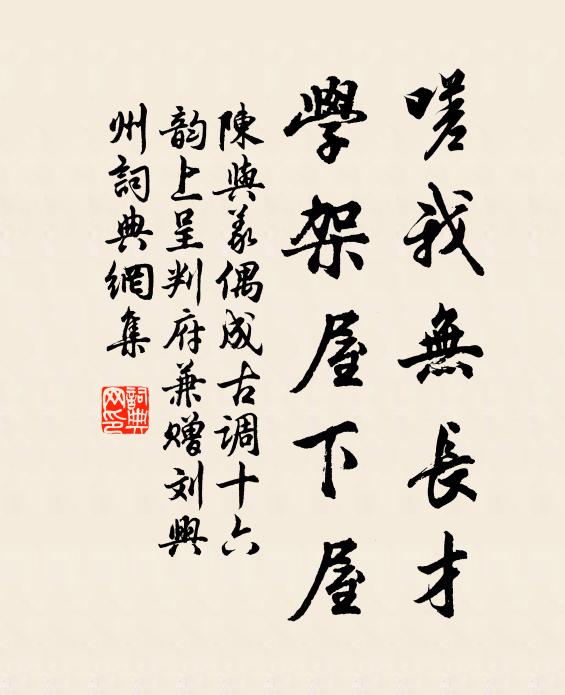 嗟我無長才
學架屋下屋
陳與義偶成古调十六
韵上呈判府兼赠刘興
州詞典網集
詞典网印